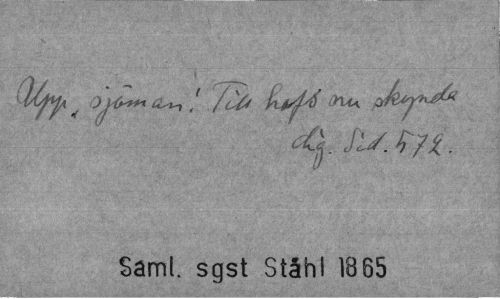 Upp, sjöman! Till hafs nu skynda
dig. Sid. 572.
Saml. sgst Ståhl 1865